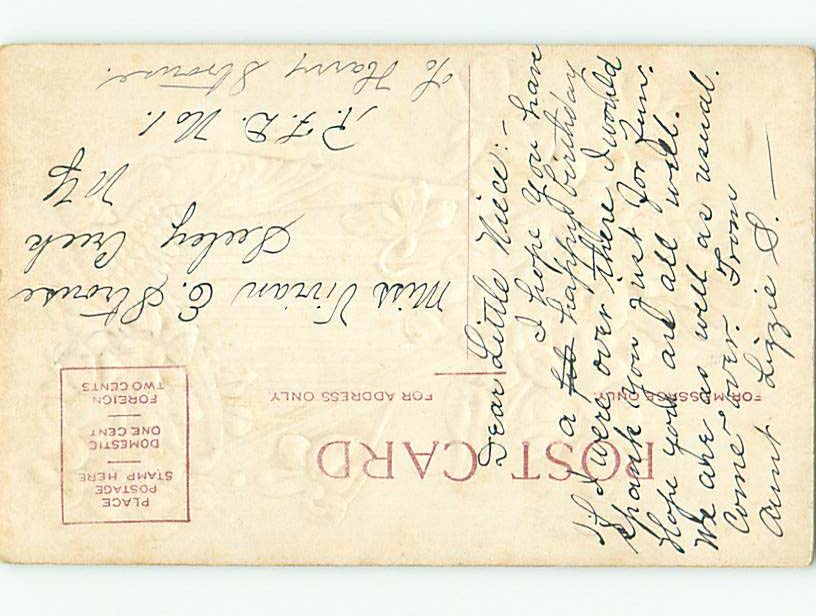 POST CARD
FOR MESSAGE ONLY
FOR ADDRESS ONLY
PLACE
POSTAGE
STAMP HERE
DOMESTIC
ONE CENT
FOREIGN
TWO CENTS
Dear Little Niece:-
I hope you have
a happy birthday
if I were over there I would
spank you just for fun.
Hope you are all well.
We are as well as usual.
Come over. From
Aunt Lizzie S.
Miss Vivian E. Strouse
Seeley Creek
N Y
R. F. D. No 1.
% Harry Strouse.